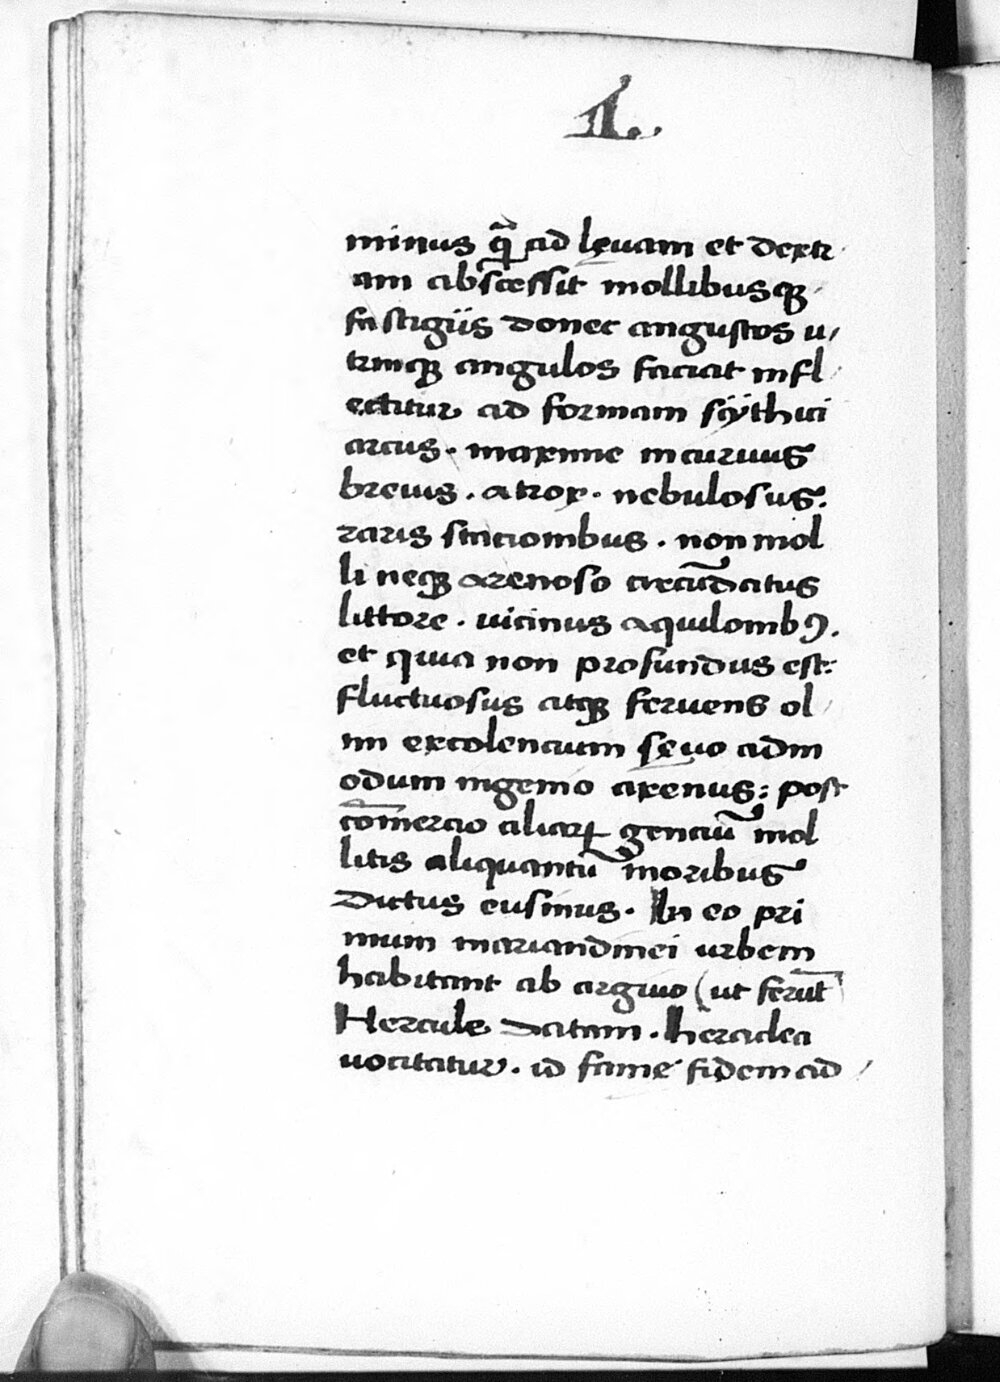 1.
minus q̃ ad lęuam et dextr
am abscessit mollibusqꝫ
fastigiis donec angustos u/
trinqꝫ angulos faciat infl
ectitur ad formam sÿthici
arcus. maxime incuruus
breuis. atrox. nebulosus:
raris stacionibus. non mol
li neqꝫ arenoso circūdatus
littore. uicinus aquilonibꝯ.
et quia non profundus est:
fluctuosus atqꝫ feruens ol
im excolencium sęuo adm
odum ingenio axenus: post
cōmercio aliaꝝ genciū mol
litis aliquantū moribus
dictus eusinus. In eo pri
mum mariandinei urbem
habitant ab argiuo (ut ferūt)
Hercule datam. heraclea
uocitatur. id fame fidem ad /